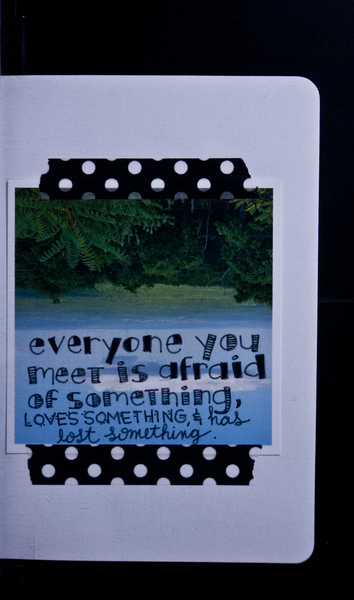 everyone you
meet is afraid
of something,
LOVES SOMETHING, & has
lost something.